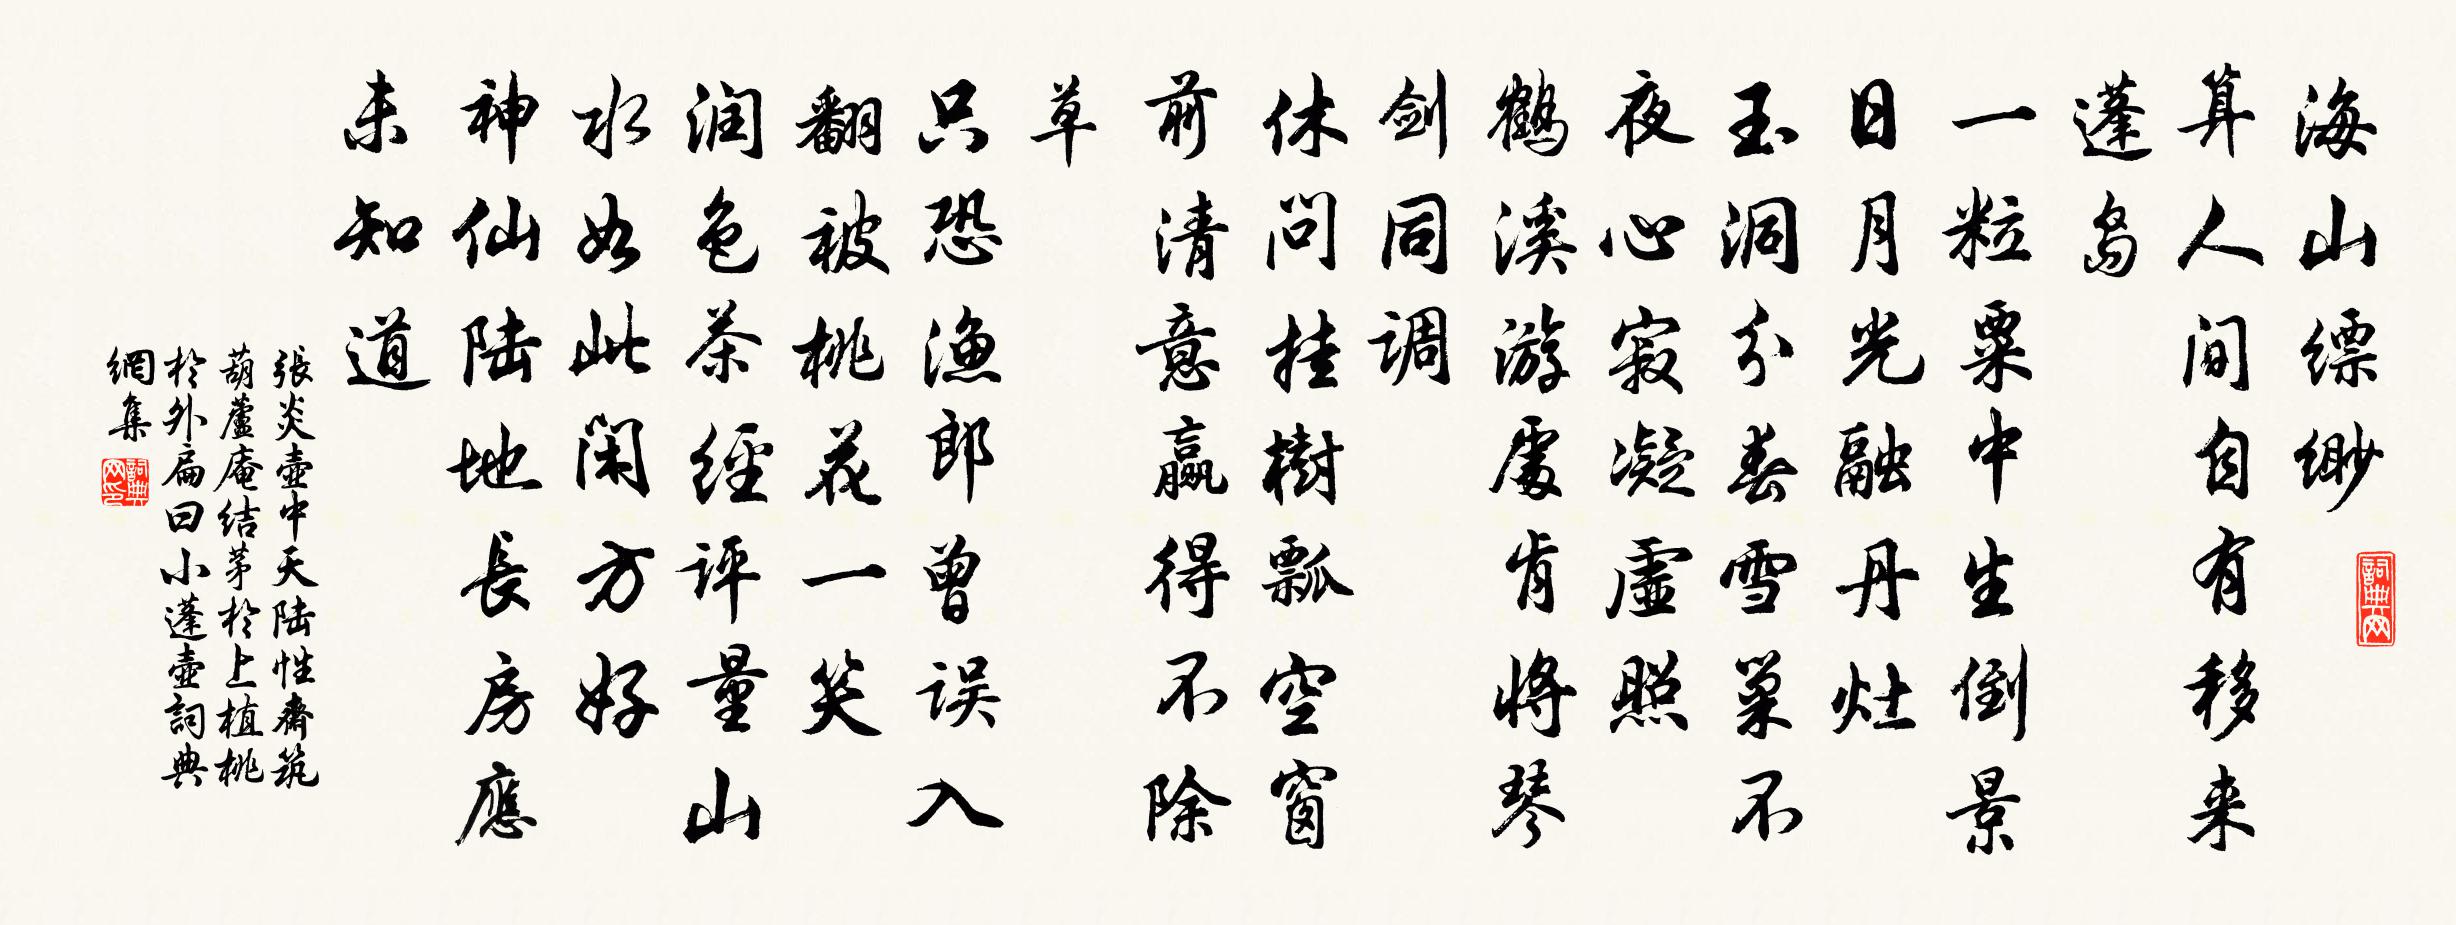 海山缥缈
算人间自有移来
蓬岛
一粒粟中生倒景
日月光融丹灶
玉洞分春雪巢不
夜心寂凝虚照
鹤溪游處肯将琴
剑同调
休问挂樹瓢空窗
前清意赢得不除
草
只恐渔郎曾误入
翻被桃花一笑
润色茶經评量山
水如此闲方好
神仙陆地長房應
未知道
張炎壺中天陆性齋筑
葫蘆庵结茅於上植桃
於外扁曰小蓬壺詞典
網集
詞典网
詞典网印